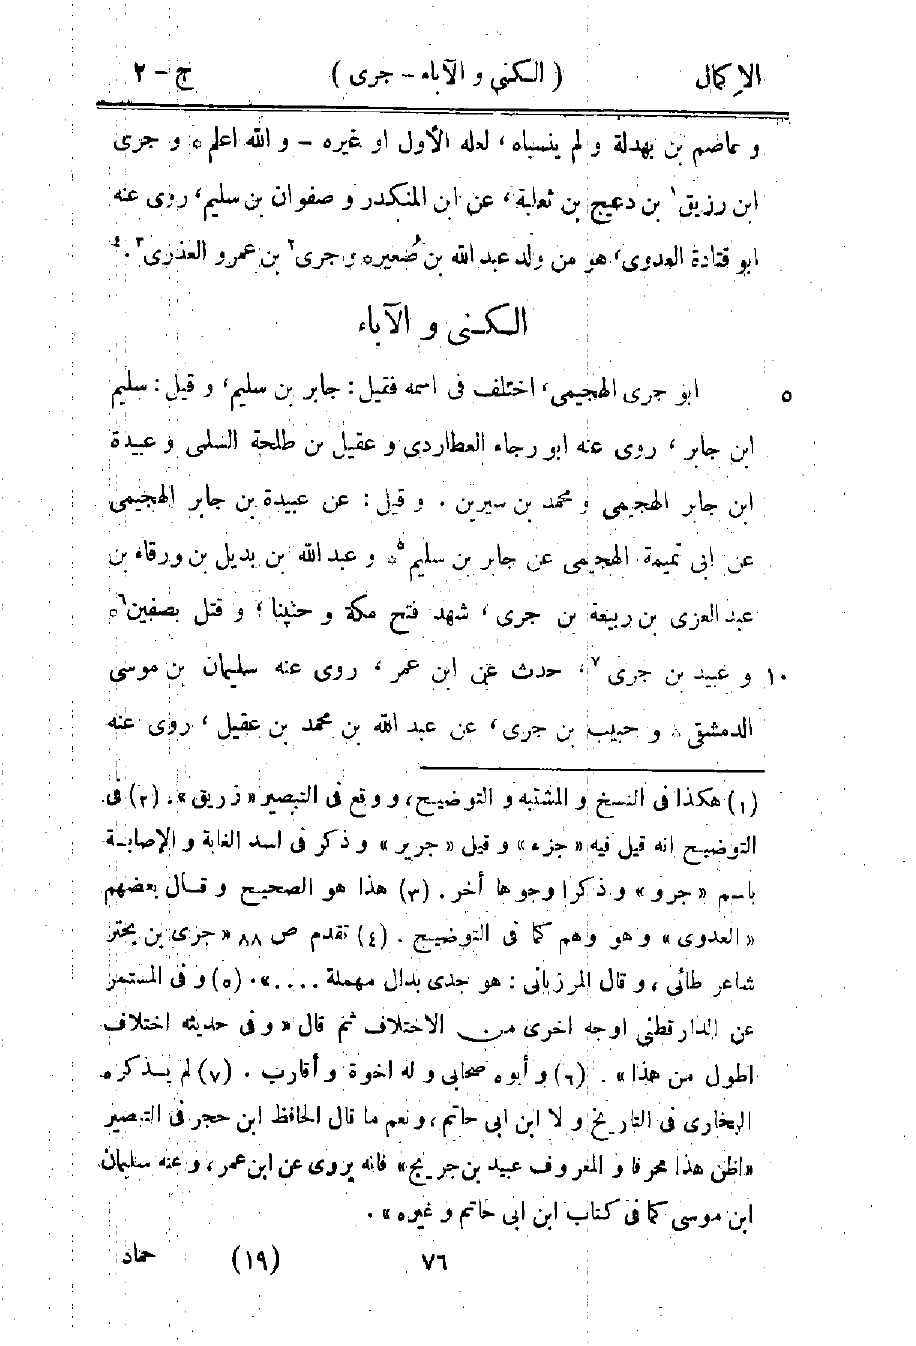 الإكمال ( الكنى و الآباء - جرى ) ج - ٢
و عاصم بن بهدلة و لم ينسباه ، لعله الأول او غيره – و الله اعلم ه و جرى
ابن رزيق١ بن دعيج بن ثعلبة ، عن ابن المنكدر و صفوان بن سليم ، روى عنه
ابو قتادة العدوى ، هو من ولد عبد الله بن صُعيره و جرى٢ بن عمرو العذرى٣ .٤
الكنى و الآباء
ابو جرى الهجيمى ، اختلف فى اسمه فقيل : جابر بن سليم ، و قيل : سليم ٥
ابن جابر ، روى عنه ابو رجاء العطاردى و عقيل بن طلحة السلمى و عبيدة
ابن جابر الهجيمى و محمد بن سيرين . و قيل : عن عبيدة بن جابر الهجيمى
عن ابى تميمة الهجيمى عن جابر بن سليم٥ه و عبد الله بن بديل بن ورقاء بن
عبد العزى بن ربيعة بن جرى ، شهد فتح مكة و حنينا ، و قتل بصفين٦ه
و عبيد بن جرى٧ ، حدث عن ابن عمر ، روى عنه سليمان بن موسى ١٠
الدمشقى ه و حبيب بن جرى ، عن عبد الله بن محمد بن عقيل ، روى عنه
(١) هكذا فى النسخ و المشتبه و التوضيح ، و وقع فى التبصير « زريق » . (٢) فى
التوضيح انه قيل فيه « جزء » و قيل « جرير » و ذكر فى اسد الغابة و الإصابة
باسم « جرو » و ذكرا وجوها أخر . (٣) هذا هو الصحيح و قال بعضهم
« العدوى » و هو وهم كما فى التوضيح . (٤) تقدم ص ٨٨ « جرى بن بحتر
شاعر طائى ، و قال المرزبانى : هو جدى بدال مهملة .... » . (٥) و فى المستمر
عن الدارقطنى اوجه اخرى من الاختلاف ثم قال « و فى حديثه اختلاف
اطول من هذا » . (٦) و أبوه صحابى و له اخوة و أقارب . (٧) لم يذكره
البخارى فى التاريخ و لا ابن ابى حاتم ، و نعم ما قال الحافظ ابن حجر فى التبصير
« اظن هذا محرفا و المعروف عبيد بن جريج » فانه يروى عن ابن عمر ، و عنه سليمان
ابن موسى كما فى كتاب ابن ابى حاتم و غيره » .
٧٦ (١٩) حماد